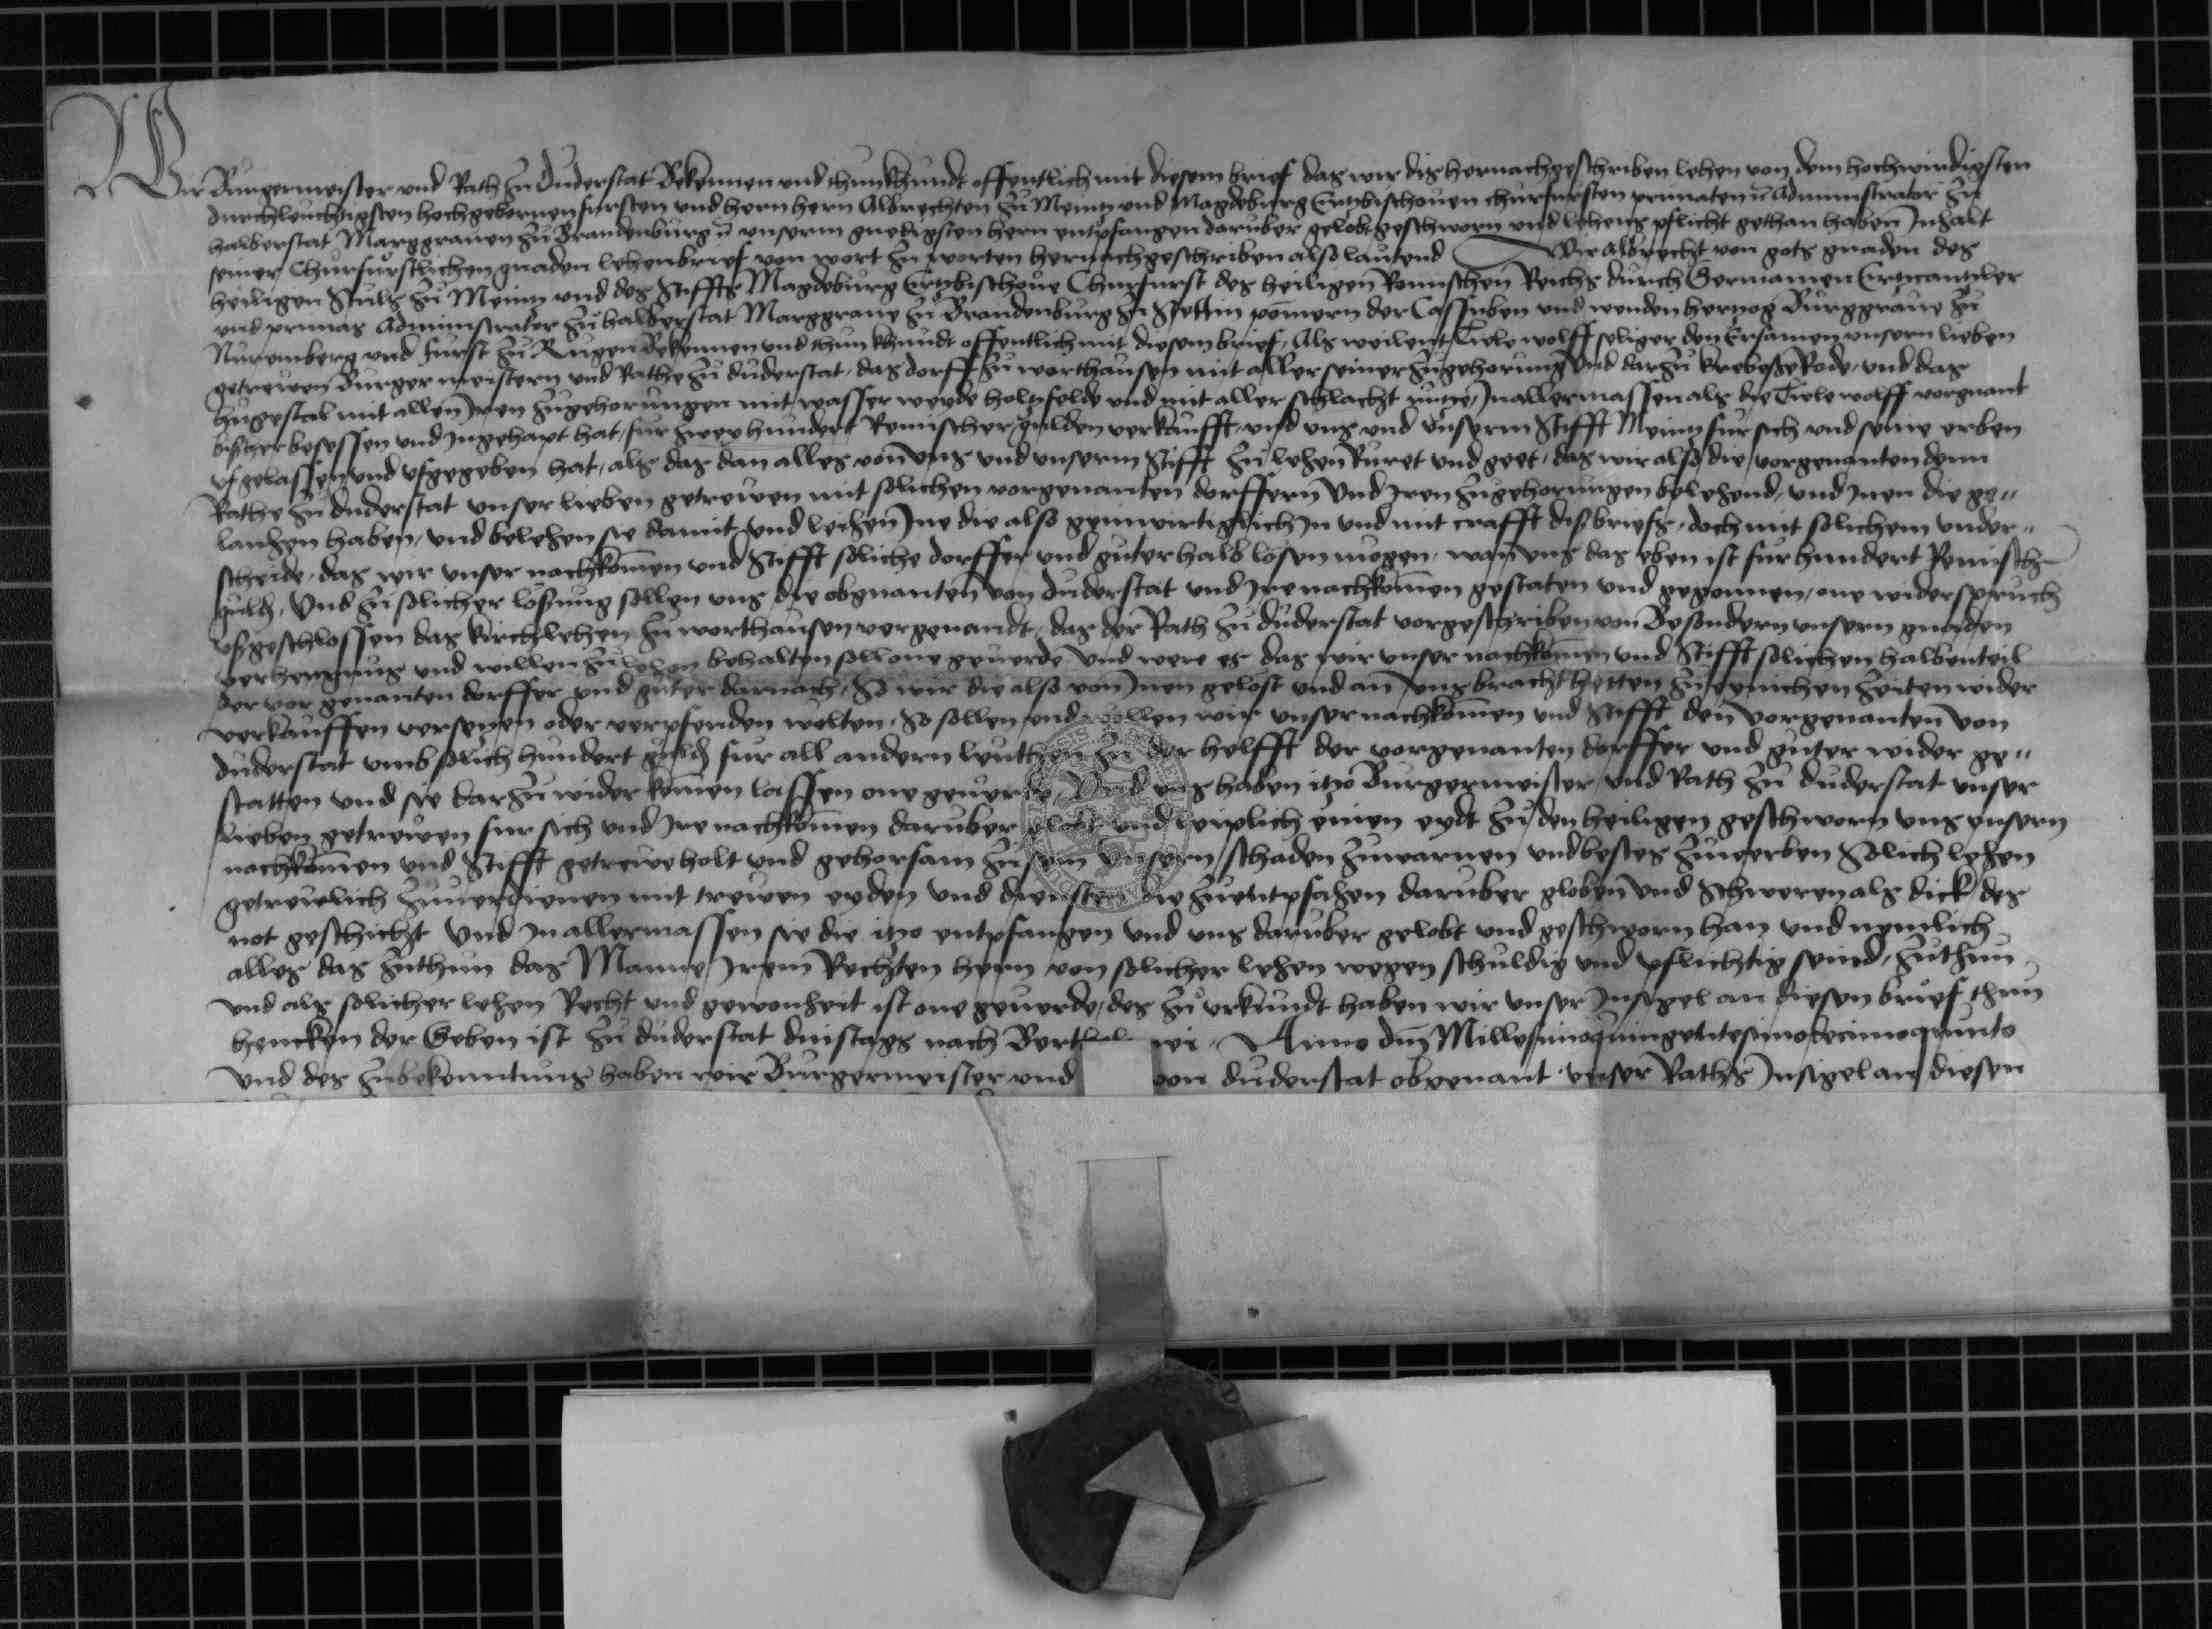 Wir Burgermeister vnd Rath zu Duderstat Bekennen vnd thun khundt offentlich mit diesem brief das wir dis hernachgeschriben lehen von dem hochwirdigsten
durchleuchtigsten hochgebornen fursten vnd hern hern Albrechten zu Meintz vnd Magdeburg Ertzbischouen churfursten primaten vn Administrator zu
halberstat Marggrauen zu Brandenburg vn vnserm gnedigsten hern entpfangen daruber gelobt geschworn vnd lehens pflicht gethan haben Inhalt
seiner Churfurstlichen gnaden lehenbrief von wort zu worten hernachgeschriben also lautend Wir Albrecht von gots gnaden des
heiligen Stuls zu Meintz vnd des Stiffts Magdeburg Ertzbischoue Churfurst des heiligen Romischen Reichs durch Germanien Ertzcantzler
vnd primas Administrator zu halberstat Marggraue zu Brandenburg zu Stettin pomern der Cassuben vnd wenden hertzog Burggraue zu
Nuremberg vnd furst zu Rugen Bekennen vnd thun khundt offentlich mit diesem brief, Als weilent Tiele wolff seliger den Ersamen vnsern lieben
getrewen Burgermeistern vnd Rathe zu duderstat, das dorff zu worthausen mit aller seiner zugehorung vnd darzu krebeßerode, vnd das
hugestal mit allen Iren zugehorungen mit wasser weyde holtz felde vnd mit aller schlacht nutze, Inallermassen als die Tiele wolff vorgnant
bißher besessen vnd Ingehapt hat, fur zweyhundert Remischer gulden verkaufft, vnd vns vnd vnserm Stifft Meintz fur sich vnd seine erben
vfgelassen vnd vfgegeben hat, als das dan alles von vns vnd vnserm Stifft zu lehen Ruret vnd geet, das wir also die vorgenanten denn
Rathe zu duderstat vnser lieben getrewen mit solichen vorgenanten dorffern vnd Iren zugehorungen belehend, vnd Inen die ge„
lauhen haben, vnd belehen sie damit vnd leihen Ine die also genwirtiglich In vnd mit crafft diß briefs, doch mit solichem vnder„
scheide, das wir vnser nachkomen vnd Stifft soliche dorffer vnd guter halb losen mogen, wan vns das eben ist fur hundert Remisch
guld, Vnd zu solicher losung sollen vns die obgnanten von duderstat vnd Ire nachkomen gestaten vnd gegonnen, one widerspruch
vßgeschlossen das kirchlehen zu worthausen vorgenandt, das der Rath zu duderstat vorgeschriben von Besondern vnsern gnaden
verhengnus vnd willen zu lehen behalten soll one geuerde Vnd were es das wir vnser nachkomen vnd Stifft solichen halbenteil
der vorgenanten dorffer vnd guter darnach, So wir die also von Inen gelost vnd an vns bracht hetten zu eynichen zeiten wider
verkauffen versetzen oder verpfenden wolten, So sollen vnd wollen wir vnser nachkomen vnd Stifft den vorgenanten von
duderstat vmb solich hundert guld fur all andern leuthen zu der helfft der vorgenanten dorffer vnd guter wider ge„
statten vnd sie darzu wider komen lassen one geuerde, Vnd vns haben itzo Burgermeister vnd Rath zu duderstat vnser
lieben getrewen fur sich vnd Ire nachkomen daruber globt vnd leiplich einen eydt zu den heiligen geschworn vns vnsern
nachkomen vnd Stifft getrewe holt vnd gehorsam zu sein vnsern schaden zuwarnen vnd bestes zuwerben Solich lehen
getrewlich zuuerdienen mit trewen eyden vnd diensten die zuentpfahen daruber globen vnd schweren als dick des
not geschicht Vnd In allermassen sie die itzo entpfangen vnd vns daruber gelobt vnd geschworn han vnd nemlich
alles das zuthun das Manne Irem Rechten hern von solicher lehen wegen schuldig vnd pflichtig seind, zuthun
vnd als solicher lehen Recht vnd gewonheit ist one geuerde, des zu vrkundt haben wir vnser Insigel an diesen brief thun
hencken der Geben ist zu duderstat dinstags nach Barthol Anno dni Millesimoquingentesimodecimoquinto
Vnd des zubekenntung haben wir Burgermeister vnd von duderstat obgenant vnser Raths Insigel an diesen